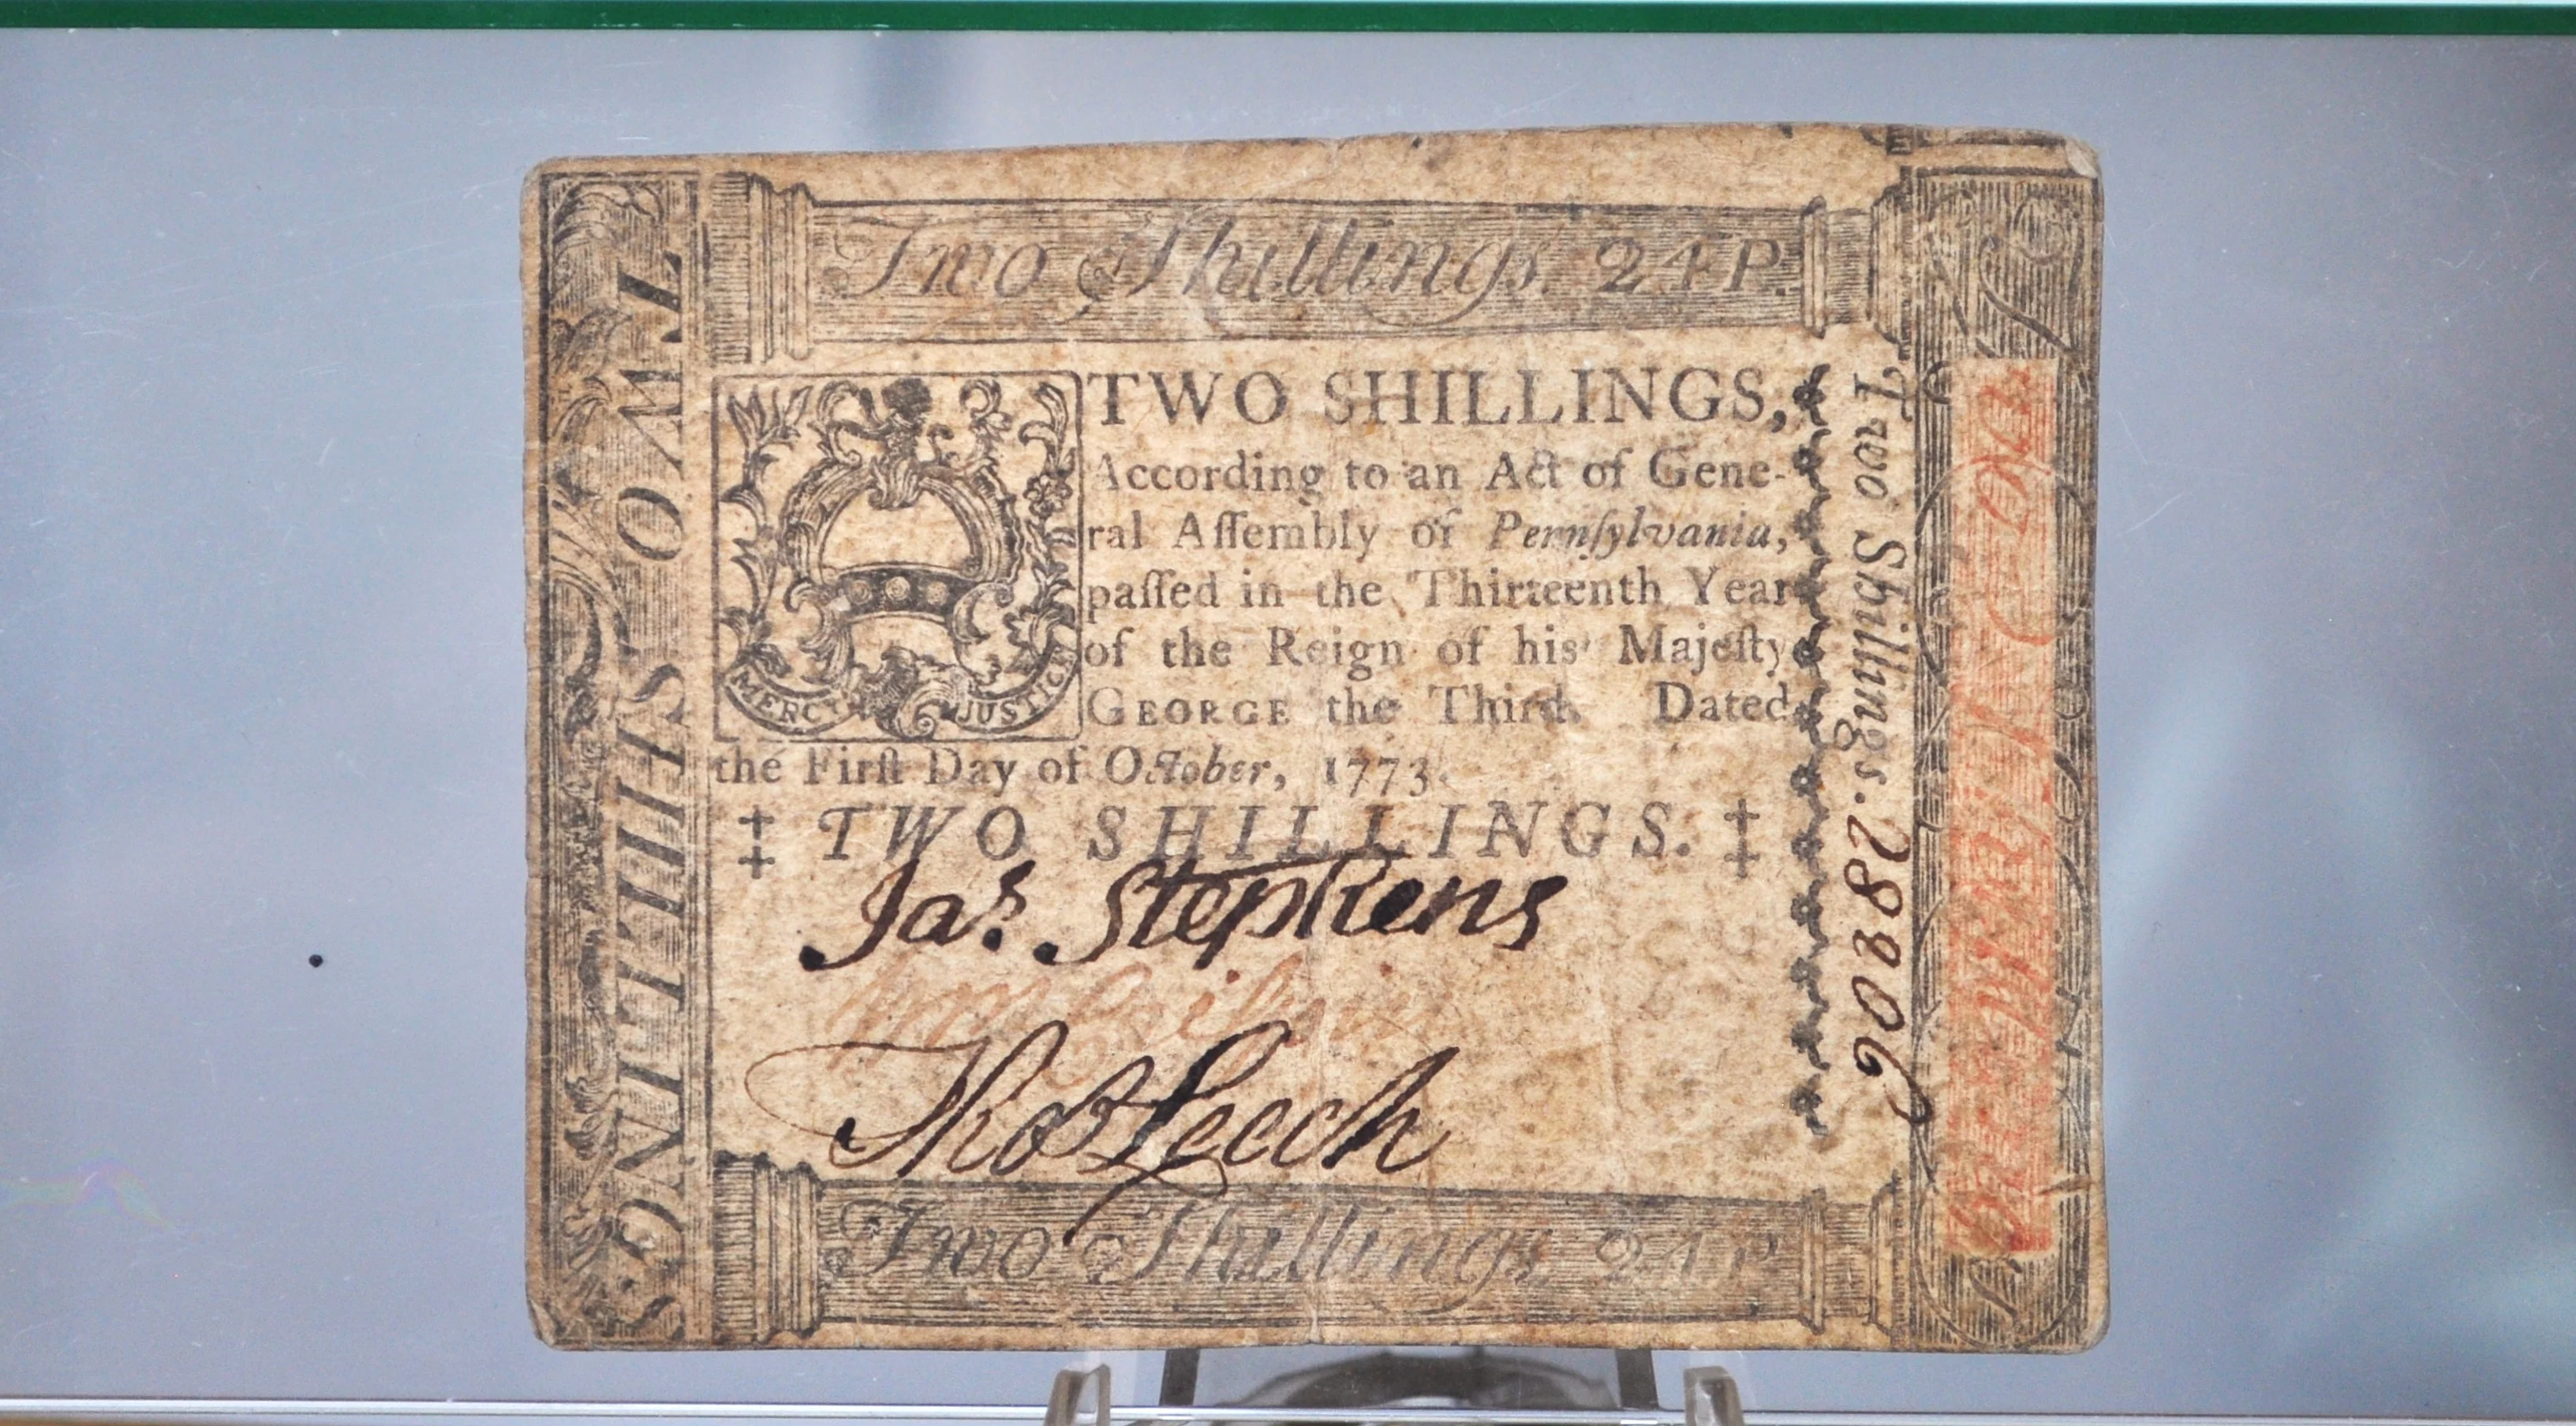 Two Shillings. 24 P.
TWO SHILLINGS
MERCY JUSTICE
TWO SHILLINGS,
According to an Act of Gene-
ral Aſſembly of Pennſylvania,
paſſed in the Thirteenth Year
of the Reign of his Majeſty
GEORGE the Third. Dated
the Firſt Day of October, 1773.
‡ TWO SHILLINGS. ‡
Jas. Stephens
Thos Leech
Two Shillings. 24 P.
Two Shillings. 28806